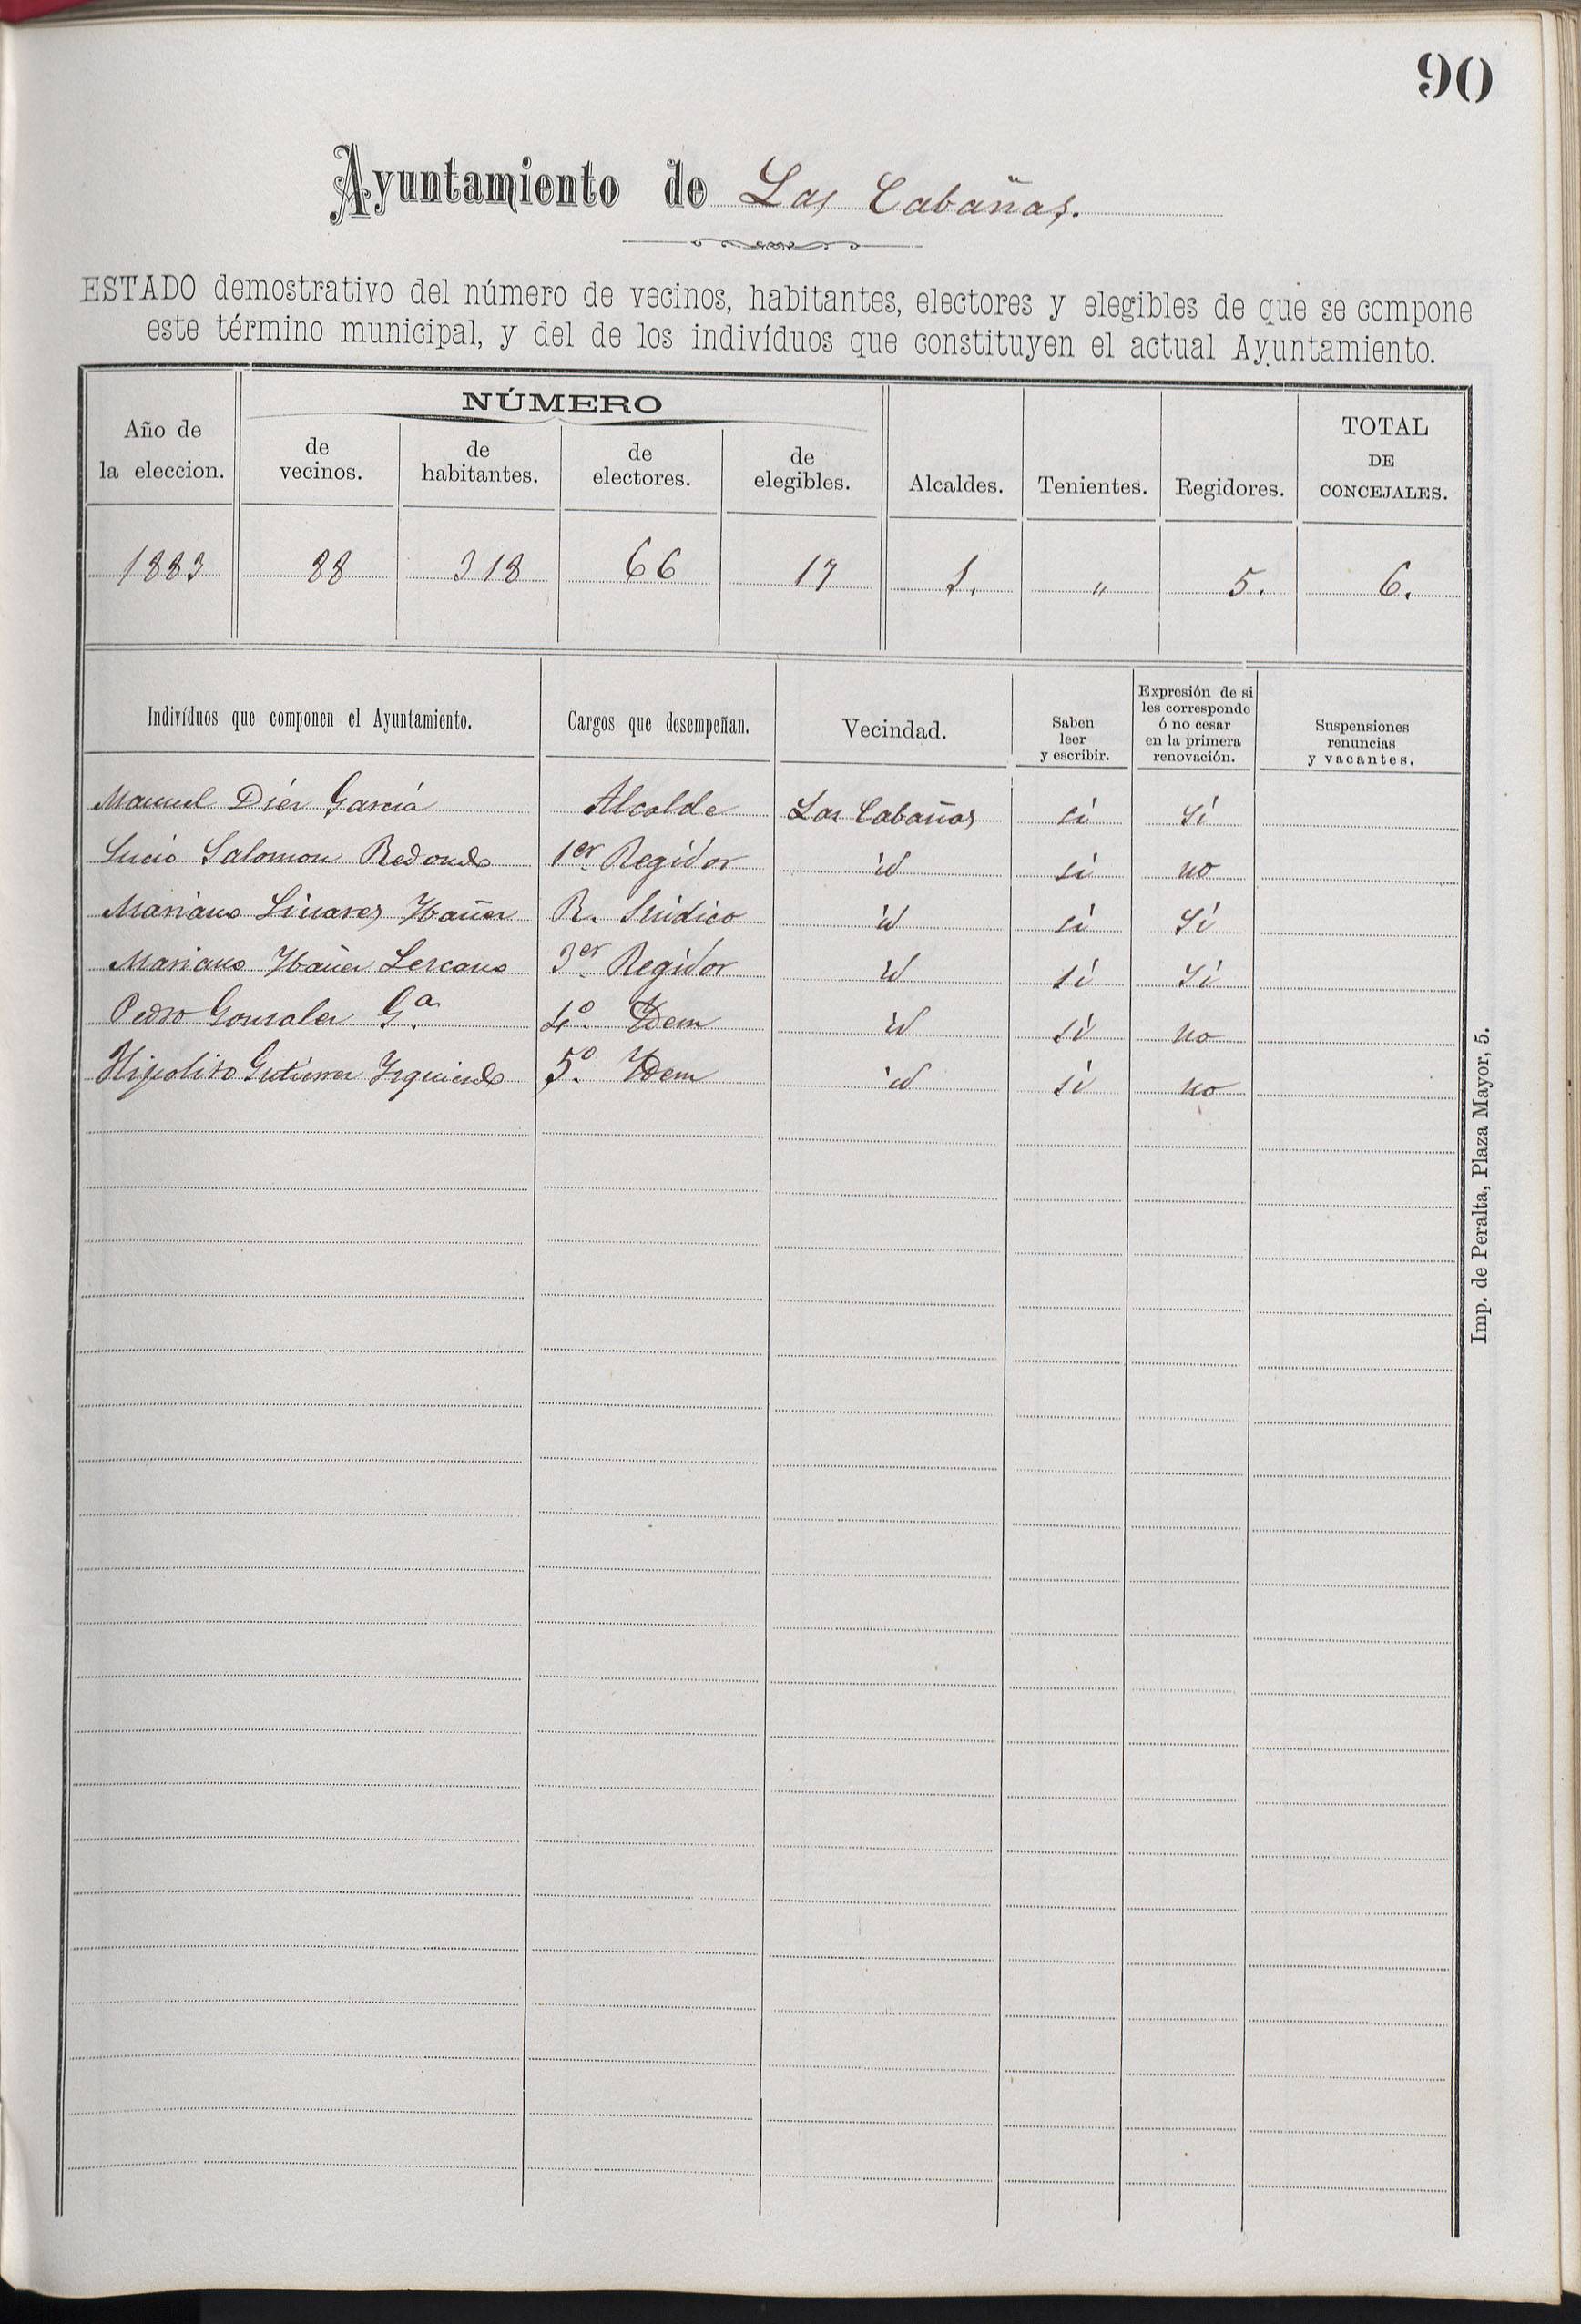 90
Ayuntamiento de Las Cabañas.
ESTADO demostrativo del número de vecinos, habitantes, electores y elegibles de que se compone
este término municipal, y del de los indivíduos que constituyen el actual Ayuntamiento.
Año de la eleccion. NÚMERO de vecinos. de habitantes. de electores. de elegibles. Alcaldes. Tenientes. Regidores. TOTAL DE CONCEJALES.
1883 88 318 66 17 1. " 5. 6.
Indivíduos que componen el Ayuntamiento. Cargos que desempeñan. Vecindad. Saben leer y escribir. Expresión de si les corresponde ó no cesar en la primera renovación. Suspensiones renuncias y vacantes.
Manuel Diez García Alcalde Las Cabañas si Si
Lucio Salomon Redondo 1er Regidor id si no
Mariano Linares Ybañez R. Sindico id si Si
Mariano Ybañez Lezcano 3er Regidor id si Si
Pedro Gonzalez Ga. 4o. Ydem id si no
Hipolito Gutierrez Yzquierdo 5o. Ydem id si no
Imp. de Peralta, Plaza Mayor, 5.